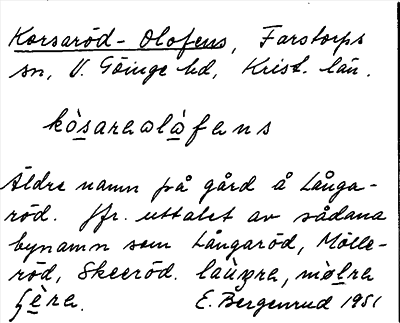 Korsaröd-Olofens, Farstorps
sn, V. Göinge hd, Krist. län.
kòsareɷlàfens
Äldre namn på gård å Långa-
röd. Jfr. uttalet av sådana
bynamn som Långaröd, Mölle-
röd, Skeeröd.
E. Bergenrud 1951